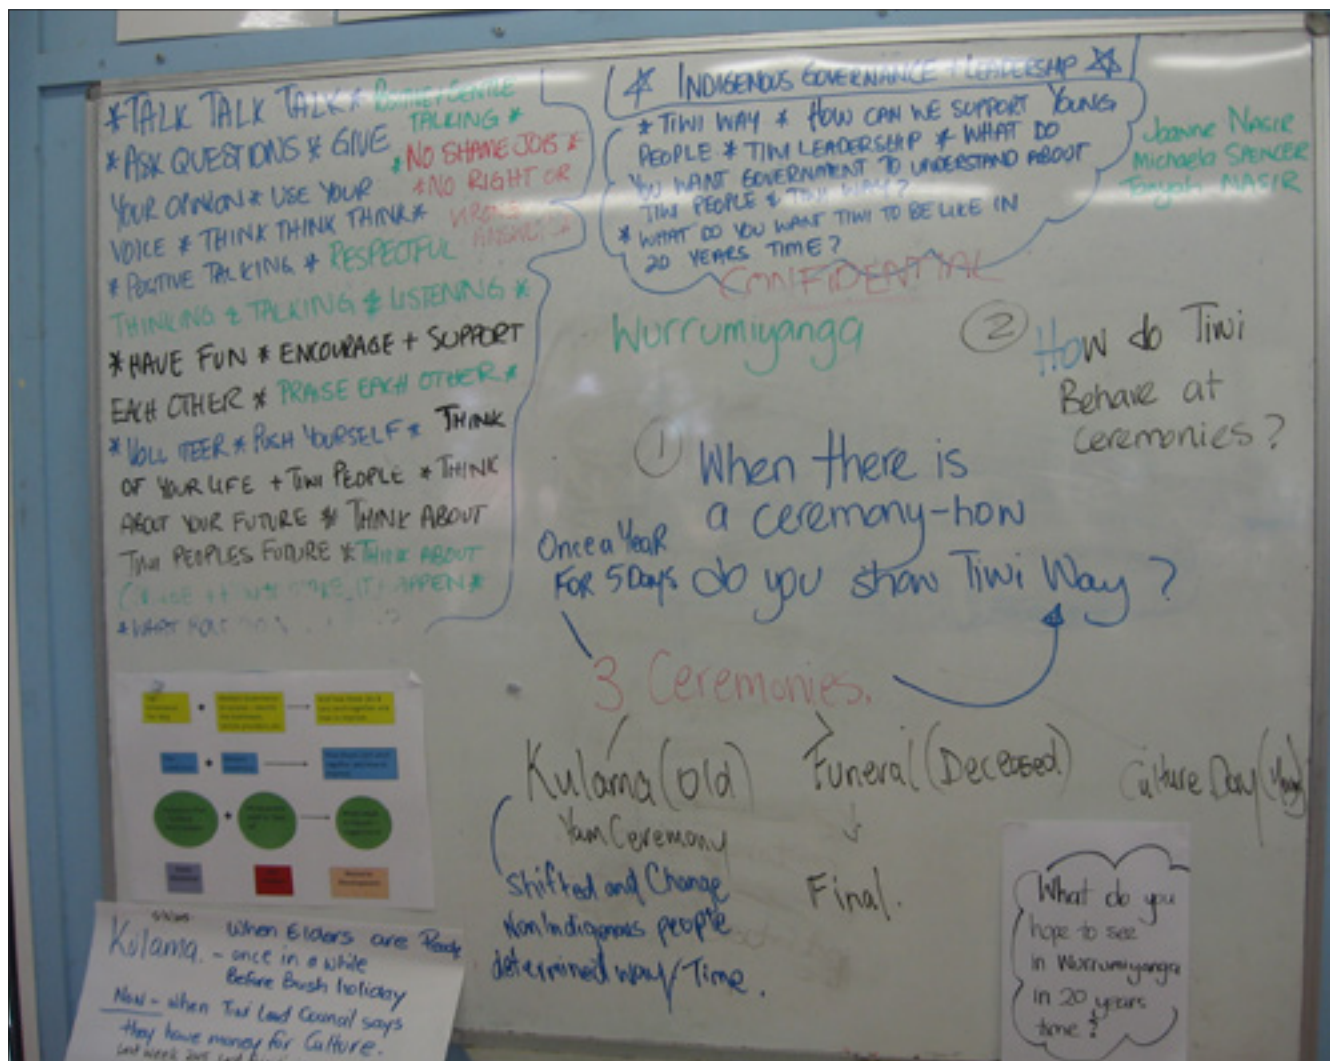 *TALK TALK TALK* POSITIVE+GENTLE
TALKING *
*ASK QUESTIONS * GIVE
*NO SHAME JOB *
YOUR OPINION * USE YOUR
*NO RIGHT OR
WRONG
VOICE * THINK THINK THINK*
* POSITIVE TALKING * RESPECTFUL
THINKING & TALKING * LISTENING *
*HAVE FUN * ENCOURAGE + SUPPORT
EACH OTHER * PRAISE EACH OTHER *
* PUSH YOURSELF * THINK
OF YOUR LIFE + TIWI PEOPLE * THINK
ABOUT YOUR FUTURE * THINK ABOUT
TIWI PEOPLES FUTURE * THINK ABOUT
*WHAT
INDIGENOUS GOVERNANCE + LEADERSHIP
* TIWI WAY * HOW CAN WE SUPPORT YOUNG
PEOPLE * TIWI LEADERSHIP * WHAT DO
YOU WANT GOVERNMENT TO UNDERSTAND ABOUT
TIWI PEOPLE & TIWI WAY?
* WHAT DO YOU WANT TIWI TO BE LIKE IN
20 YEARS TIME?
CONFIDENTIAL
Joanne NASIR
Michaela SPENCER
Tanyah NASIR
Wurrumiyanga
② How do Tiwi
Behave at
ceremonies?
① When there is
a ceremony-how
do you show Tiwi Way?
Once a YEAR
FOR 5 Days
3 Ceremonies.
Kulama (Old)
Yam Ceremony
Shifted and Change
Non Indigenous people
determined way/Time.
Funeral (Deceased)
Final.
Culture Day
Kulama. - When Elders are Ready
- once in a while
Before Bush holiday
Now - when Tiwi Land Council says
they have money for Culture.
What do you
hope to see
in Wurrumiyanga
in 20 years
time?